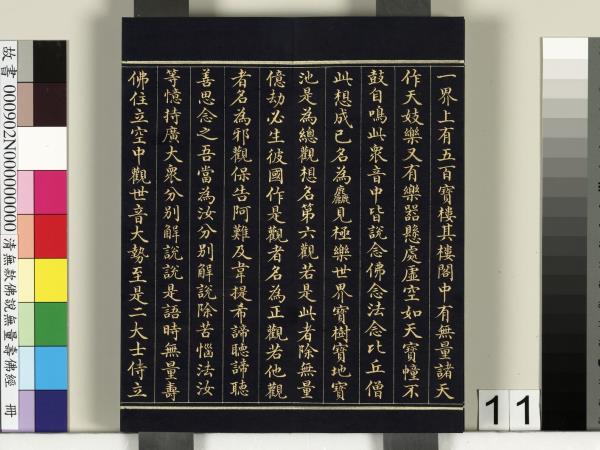 一界上有五百寶樓其樓閣中有無量諸天
作天妓樂又有樂器懸處虛空如天寶幢不
鼓自鳴此眾音中皆說念佛念法念比丘僧
此想成已名為麤見極樂世界寶樹寶地寶
池是為總觀想名第六觀若是此者除無量
億劫必生彼國作是觀者名為正觀若他觀
者名為邪觀保告阿難及韋提希諦聽諦聽
善思念之吾當為汝分別解說除苦惱法汝
等憶持廣大眾分別解說說是語時無量壽
佛住立空中觀世音大勢至是二大士侍立
故書 000902N000000000 清無款佛說無量壽佛經 冊
11